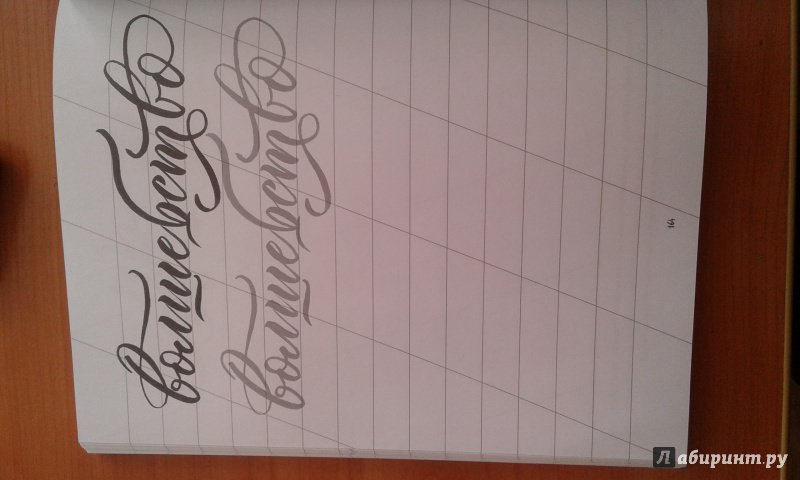 волшебство
волшебство
Лабиринт.ру